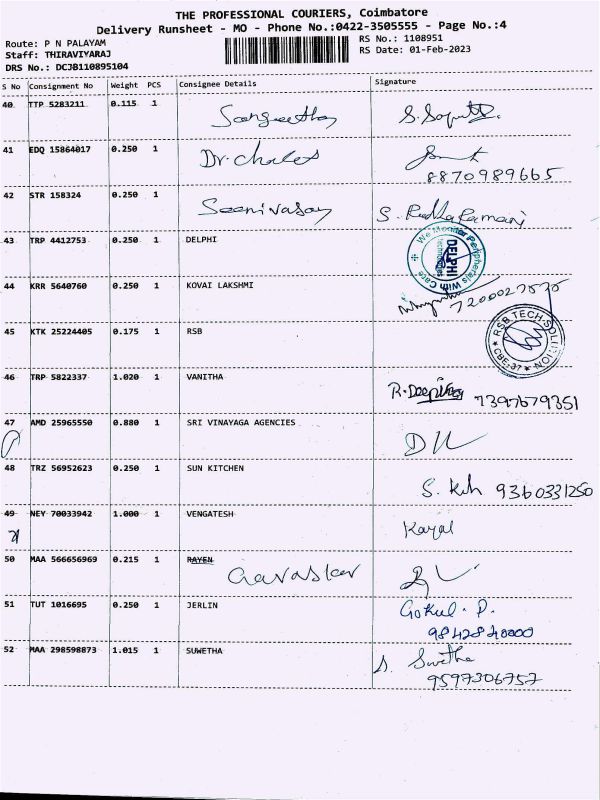 THE PROFESSIONAL COURIERS, Coimbatore
Delivery Runsheet - MO - Phone No.:0422-3505555 - Page No.:4
Route: P N PALAYAM
Staff: THIRAVIYARAJ
DRS No.: DCJB110895104
RS No.: 1108951
RS Date: 01-Feb-2023
S No Consignment No Weight PCS Consignee Details Signature
40 TTP 5283211 0.115 1 Sangeetha
41 EDQ 15864017 0.250 1 Dr. Charles
8870989665
42 STR 158324 0.250 1 Seenivasan S. Radha Ramani
43 TRP 4412753 0.250 1 DELPHI
We Monitor Peripherals With Care
DELPHI
Technologies
44 KRR 5640760 0.250 1 KOVAI LAKSHMI
7200027535
45 KTK 25224405 0.175 1 RSB
RSB TECH SOLUTION
CBE-37
46 TRP 5822337 1.020 1 VANITHA R. Deepika 7397679351
47 AMD 25965550 0.880 1 SRI VINAYAGA AGENCIES
48 TRZ 56952623 0.250 1 SUN KITCHEN S. 9360331250
49 NEY 70033942 1.000 1 VENGATESH Kayal
50 MAA 566656969 0.215 1 RAYEN
51 TUT 1016695 0.250 1 JERLIN Gokul. P.
9842840000
52 MAA 298598873 1.015 1 SUWETHA S. Swetha
9597306757